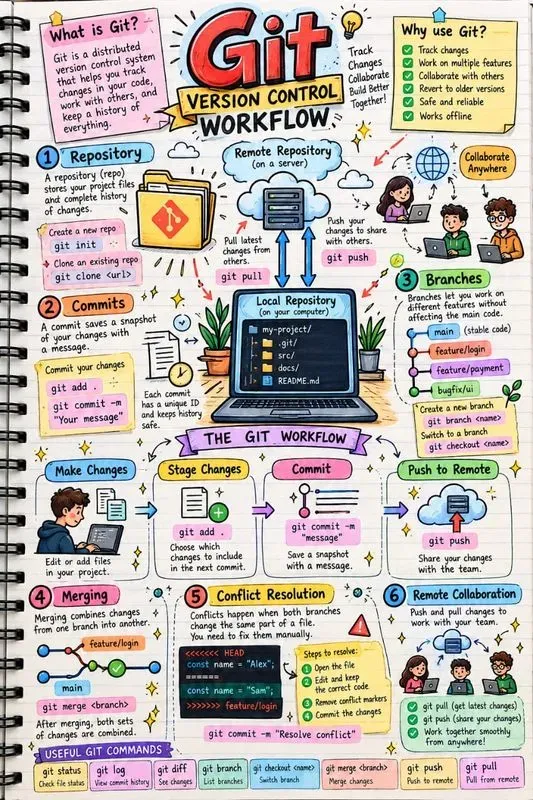 What is Git?
Git is a distributed
version control system
that helps you track
changes in your code,
work with others, and
keep a history of
everything.
Git
VERSION CONTROL
WORKFLOW
Track
Changes
Collaborate
Build Better
Together!
Why use Git?
Track changes
Work on multiple features
Collaborate with others
Revert to older versions
Safe and reliable
Works offline
1 Repository
A repository (repo)
stores your project files
and complete history
of changes.
Create a new repo
git init
Clone an existing repo
git clone <url>
Remote Repository
(on a server)
Pull latest
changes from
others.
git pull
Push your
changes to share
with others.
git push
Collaborate
Anywhere
2 Commits
A commit saves a snapshot
of your changes with
a message.
Commit your changes
git add .
git commit -m
"Your message"
Each commit
has a unique ID
and keeps history
safe.
Local Repository
(on your computer)
my-project/
.git/
src/
docs/
README.md
3 Branches
Branches let you work on
different features without
affecting the main code.
main (stable code)
feature/login
feature/payment
bugfix/ui
Create a new branch
git branch <name>
Switch to a branch
git checkout <name>
THE GIT WORKFLOW
Make Changes
Edit or add files
in your project.
Stage Changes
git add .
Choose which
changes to include
in the next commit.
Commit
git commit -m
"message"
Save a snapshot
with a message.
Push to Remote
git push
Share your changes
with the team.
4 Merging
Merging combines changes
from one branch into another.
feature/login
main
git merge <branch>
After merging, both sets
of changes are combined.
5 Conflict Resolution
Conflicts happen when both branches
change the same part of a file.
You need to fix them manually.
<<<<<<< HEAD
const name = "Alex";
=======
const name = "Sam";
>>>>>>> feature/login
Steps to resolve:
1 Open the file
2 Edit and keep
the correct code.
3 Remove conflict markers
4 Commit the changes
git commit -m "Resolve conflict"
6 Remote Collaboration
Push and pull changes to
work with your team.
git pull (get latest changes)
git push (share your changes)
Work together smoothly
from anywhere!
USEFUL GIT COMMANDS
git status
Check file status
git log
View commit history
git diff
See changes
git branch
List branches
git checkout <name>
Switch branch
git merge <branch>
Merge changes
git push
Push to remote
git pull
Pull from remote